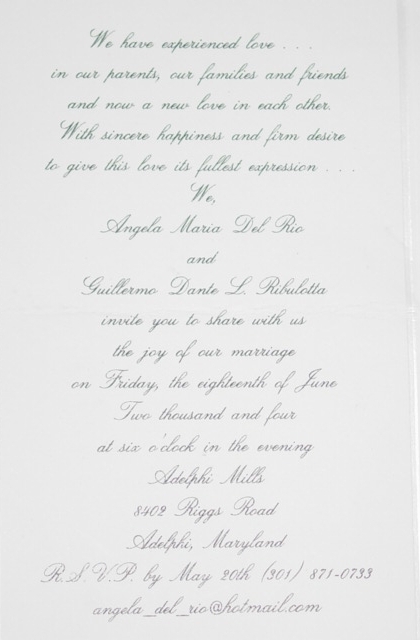 We have experienced love . . .
in our parents, our families and friends
and now a new love in each other.
With sincere happiness and firm desire
to give this love its fullest expression . . .
We,
Angela Maria Del Rio
and
Guillermo Dante L. Ribulotta
invite you to share with us
the joy of our marriage
on Friday, the eighteenth of June
Two thousand and four
at six o'clock in the evening
Adelphi Mills
8402 Riggs Road
Adelphi, Maryland
R.S.V.P. by May 20th (301) 871-0733
angela_del_rio@hotmail.com